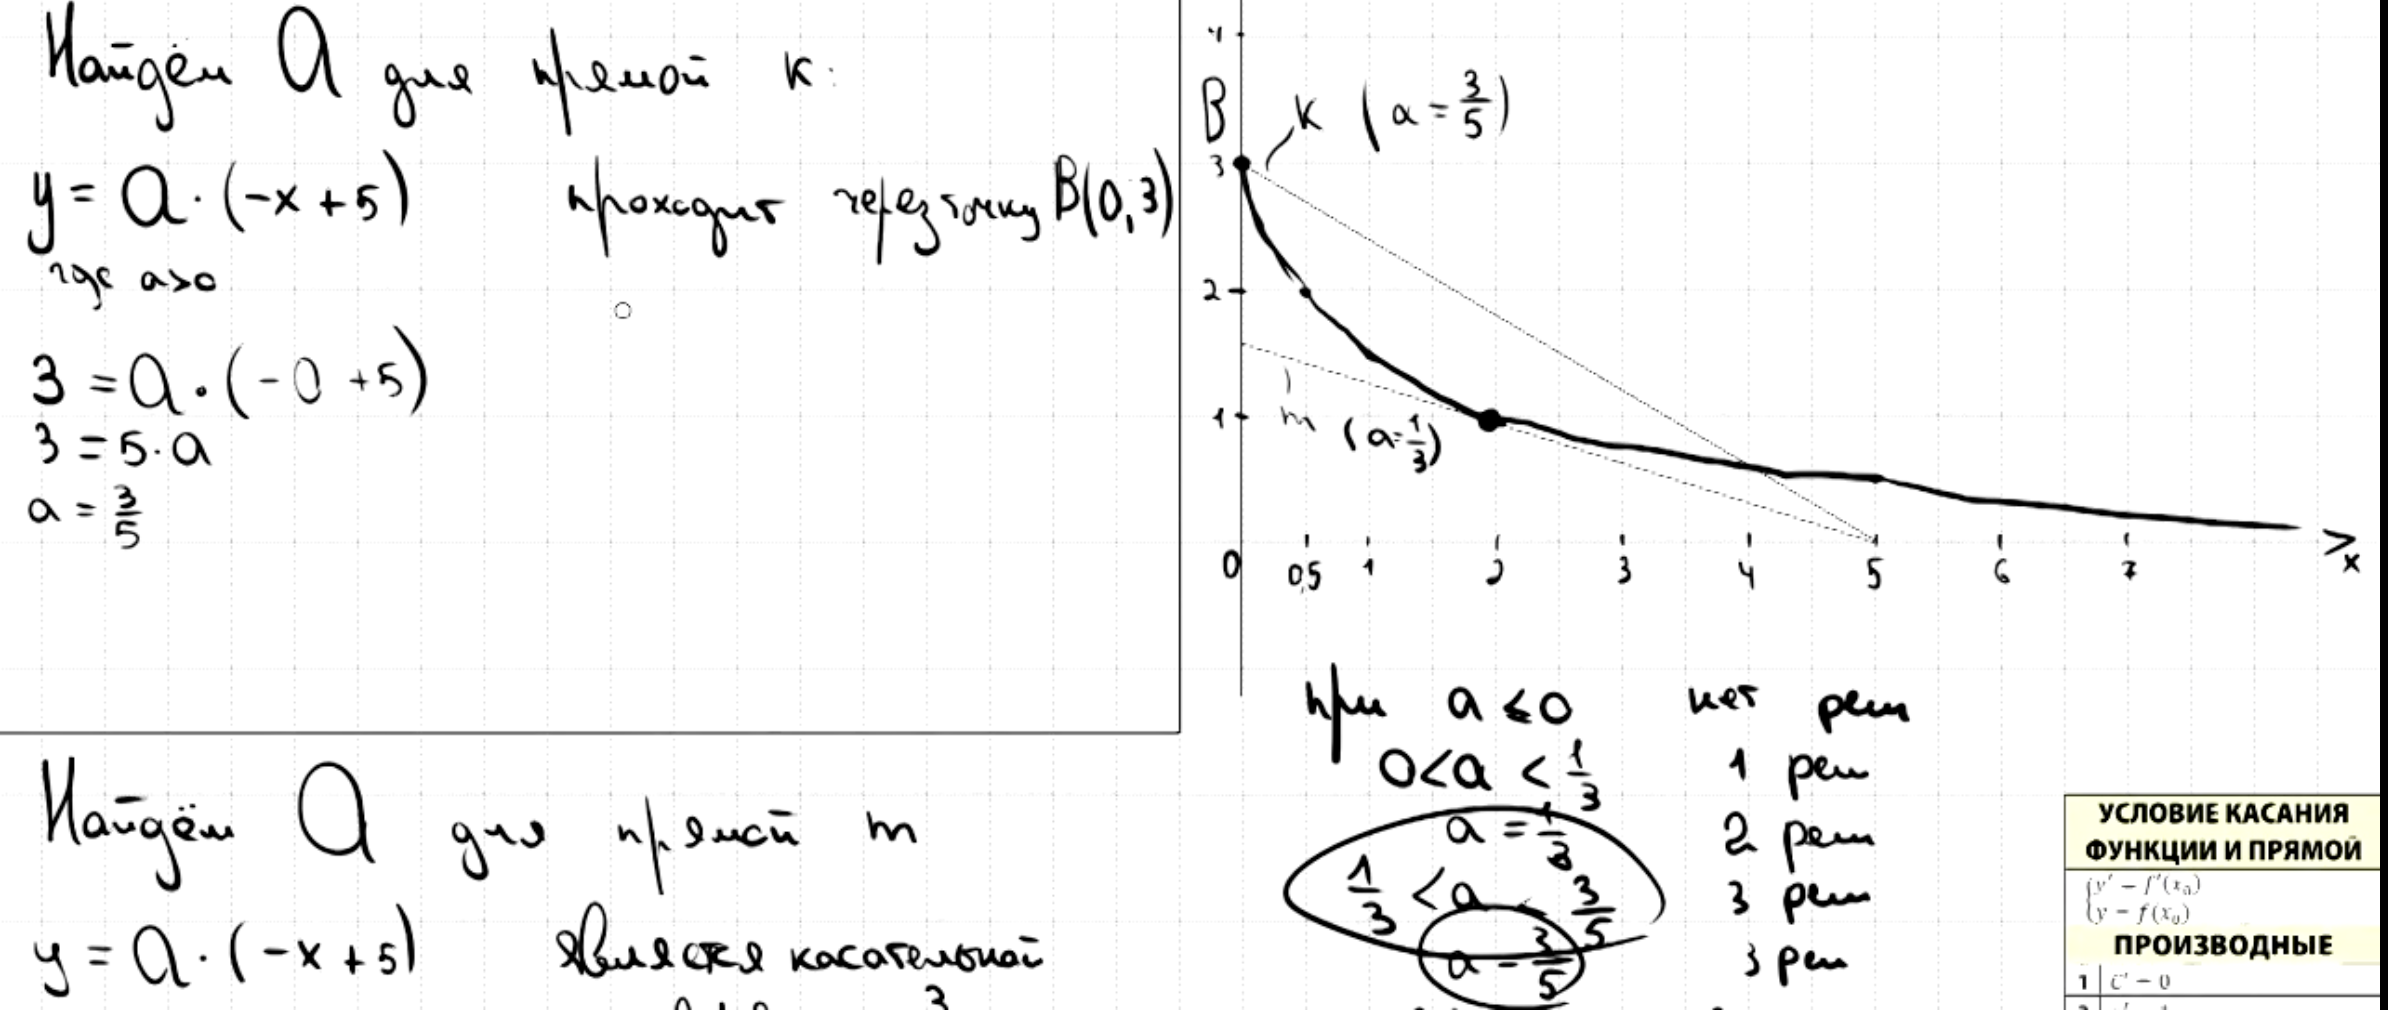 Найдём a для прямой k:
y = a · (-x + 5) проходит через точку B(0,3)
где a>0
3 = a · (-0 + 5)
3 = 5 · a
a = 3/5
Найдём a для прямой m
y = a · (-x + 5) является касательной
3
4
B
k (a = 3/5)
3
2
1
m (a = 1/3)
0 0,5 1 2 3 4 5 6 7 x
при a ≤ 0 нет реш
0 < a < 1/3 1 реш
a = 1/3 2 реш
1/3 < a < 3/5 3 реш
a = 3/5 3 реш
УСЛОВИЕ КАСАНИЯ
ФУНКЦИИ И ПРЯМОЙ
y' = f'(x₀)
y = f(x₀)
ПРОИЗВОДНЫЕ
1 c' = 0